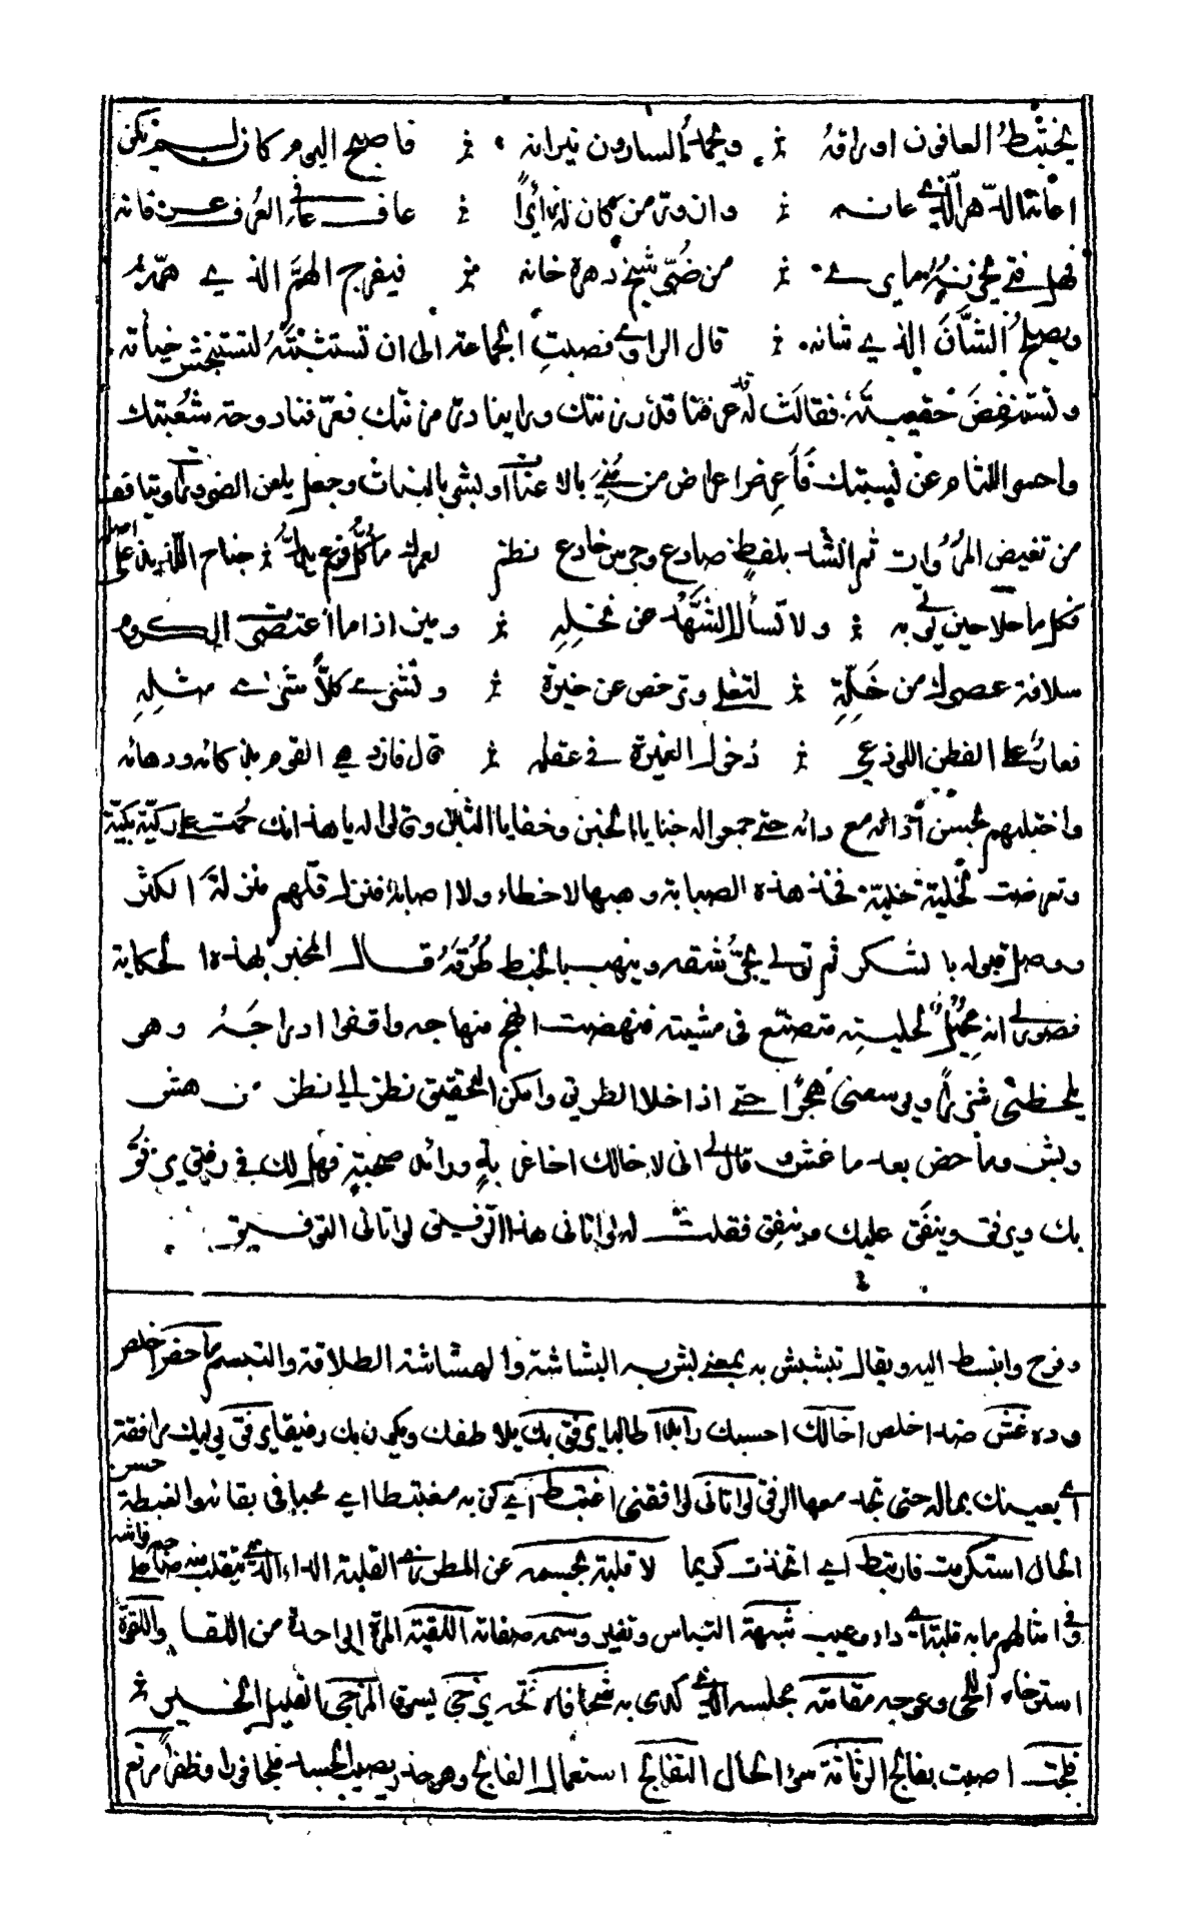 يختبط العافون اوراقه ويحمد السارون نيرانه فاصبح اليوم كان لم يكن
اعانه الدهر الذي عانه وازورّ من كان له زائرا عاف عافي العرف عرفانه
فهل فتى يحزنه ما يرى من ضرّ شيخ دهره خانه فيفرج الهمّ الذي همّه
ويصلح الشان الذي شانه قال الراوي فصبت الجماعة الى ان تستثبته لتستنجش خباته
وتستنفض حقيبته فقالت له عرفنا قدر رتبتك ورأينا درّ مزنتك فعرّفنا دوحة شعبتك
واحسر اللثام عن نسبتك فاعرض اعراض من مني بالاعنات او بشر بالبنات وجعل يلعن الضرورات ويتافف
من تغيض المروّات ثم انشد بلفظ صادع وجرس خادع نظم لعمرك ما كل فرع يدلّ جناه اللذيذ على اصله
فكل ما حلا حين تؤتى به ولا تسأل الشهد عن نحله وميز اذا ما اعتصرت الكروم
سلافة عصرك من خلّه لتغلي وترخص عن خبرة وتشري كلا شرى مثله
فعار على الفطن اللوذعي دخول الغميزة في عقله قال فازدهى القوم بذكائه ودهائه
واختلبهم بحسن ادائه مع دائه حتى جمعوا له خبايا الخبن وخفايا الثبن وقالوا له يا هذا انك حمت على ركيّة بكيّة
وتعرضت لخلية خليّة فخذ هذه الصبابة وهبها لا خطاء ولا اصابة فنزل قلّهم منزلة الكثر
ووصل قبوله بالشكر ثم تولى يجرّ شقه وينهب بالخبط طرقه قال المخبر بهذه الحكاية
فصوّر لي انه محيل لحليته متصنع في مشيته فنهضت انهج منهاجه واقفوا ادراجه وهو
يلحظني شزرا ويوسعني هجرا حتى اذا خلا الطريق وامكن التحقيق نظر الي نظر من هش
وبش وماحض بعد ما غش وقال لي اني لاخالك اخا غربة ورائد صحبة فهل لك في رفيق يرفق
بك ويرفق وينفق عليك وينفق فقلت له لو اتاني هذا الرفيق لواتاني التوفيق
وفرح وانبسط اليه ويقال تبشبش به بمعنى بش به البشاشة والهشاشة الطلاقة والتبسم ماحض اخلص
وده غش ضد اخلص اخالك احسبك رائدا طالبا يرفق بك يلاطفك ويكون بك رفيقا يرفق بي مرافقة
اي يعينك بماله حتى تجد معها الرفق لواتاني لوافقني اغتبط اي كن به مغتبطا اي محبا في بقائه والغبطة حسن
الحال استكرمت فارتبط اي اتخذت كريما لا قلبة بجسمه عن المطرزي القلبة الداء الذي يتقلب منه صاحبه على فراشه
وفي امثالهم ما به قلبة اي داء وعيب شبهة التباس وتغير وسمه صفاته اللقية المرة الواحدة من اللقاء واللقوة
استرخاء اللحى وعوجه مقامته مجلسه الذي كدى به شحا فاه فتحه يزجي يسوق المزجى القليل الخسيس
فلجت اصبت بفالج الرثاثة سوء الحال التفالج استعمال الفالج وهو